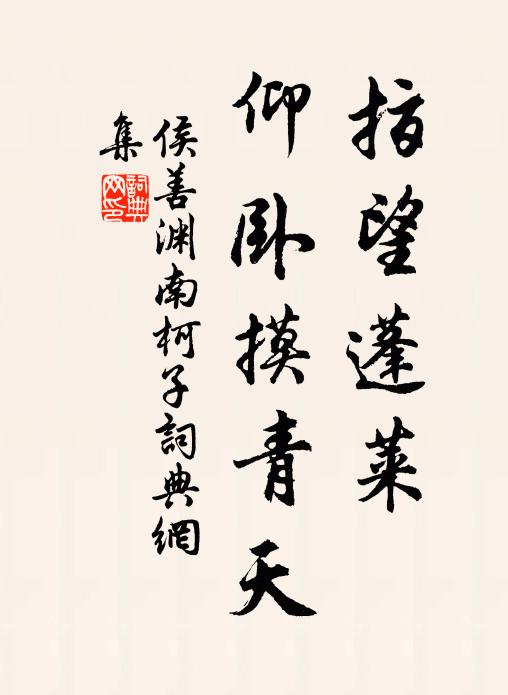 指望蓬莱
仰卧摸青天
侯善渊南柯子詞典網
集
詞典
网印